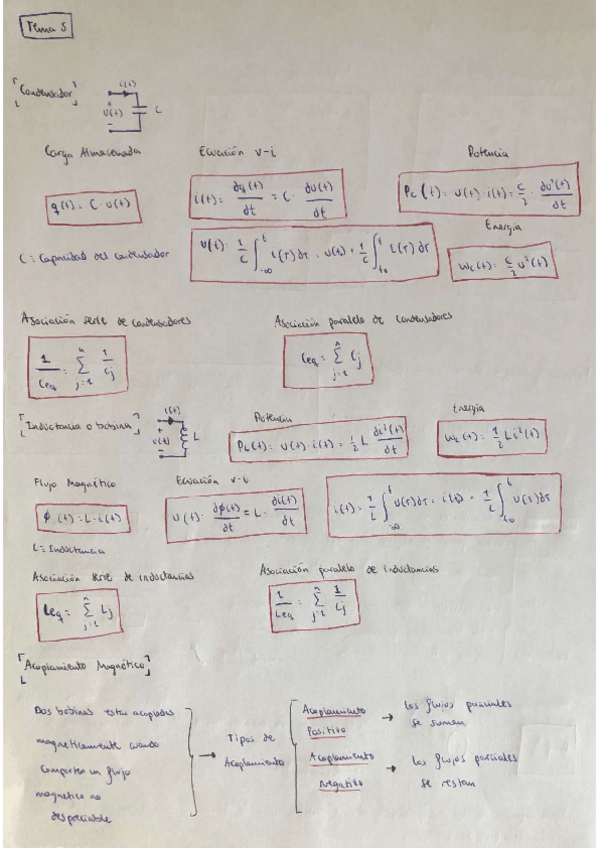 Tema 5
Condensador
i(t)
+
v(t)
-
C
Carga Almacenada
q(t) = C · v(t)
C = Capacidad del condensador
Ecuación v-i
i(t) = ∂q(t)/∂t = C · ∂v(t)/∂t
v(t) = 1/C ∫_{-∞}^{t} i(τ) dτ = v(t) + 1/C ∫_{t0}^{t} i(τ) dτ
Potencia
Pc(t) = v(t) · i(t) = C/2 · ∂v²(t)/∂t
Energía
Wc(t) = C/2 v²(t)
Asociación serie de condensadores
1/Ceq = Σ_{j=1}^{n} 1/Cj
Asociación paralelo de condensadores
Ceq = Σ_{j=1}^{n} Cj
Inductancia o bobina
i(t)
+
v(t)
-
L
Potencia
PL(t) = v(t) · i(t) = 1/2 L ∂i²(t)/∂t
Energía
WL(t) = 1/2 L i²(t)
Flujo Magnético
ϕ(t) = L · i(t)
L = Inductancia
Ecuación v-i
v(t) = ∂ϕ(t)/∂t = L · ∂i(t)/∂t
i(t) = 1/L ∫_{-∞}^{t} v(τ) dτ = i(t0) + 1/L ∫_{t0}^{t} v(τ) dτ
Asociación serie de inductancias
Leq = Σ_{j=1}^{n} Lj
Asociación paralelo de inductancias
1/Leq = Σ_{j=1}^{n} 1/Lj
Acoplamiento Magnético
Dos bobinas estan acopladas
magneticamente cuando
comparten un flujo
magnetico no
despreciable
→ Tipos de
Acoplamiento
Acoplamiento
Positivo
→ los flujos parciales
se suman
Acoplamiento
Negativo
→ los flujos parciales
se restan